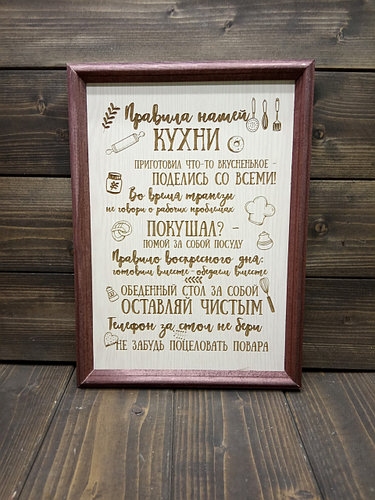 Правила нашей
КУХНИ
ПРИГОТОВИЛ ЧТО-ТО ВКУСНЕНЬКОЕ -
ПОДЕЛИСЬ СО ВСЕМИ!
Во время трапезы
не говори о рабочих проблемах
ПОКУШАЛ? -
ПОМОЙ ЗА СОБОЙ ПОСУДУ
Правило воскресного дня:
готовим вместе - обедаем вместе
ОБЕДЕННЫЙ СТОЛ ЗА СОБОЙ
ОСТАВЛЯЙ ЧИСТЫМ
Телефон за стол не бери
НЕ ЗАБУДЬ ПОЦЕЛОВАТЬ ПОВАРА